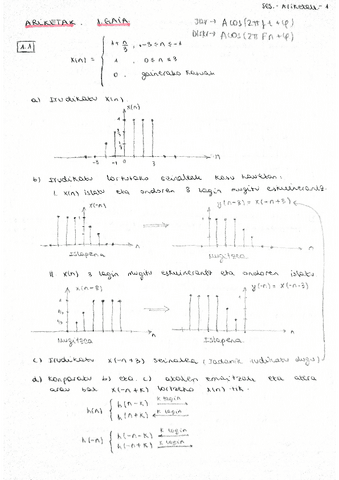 ARIKETAK. 1.GAIA
Jar → A cos(2πft+φ)
Diskr → A cos(2πFn+φ)
1.1
x(n) = { 1+n/3, -3≤n≤-1
1, 0≤n≤3
0, gainerako kasuak
a) Irudikatu x(n).
x(n)
-3 -1 0 3 n
b) Irudikatu lortutako seinaleak kasu hauetan:
I. x(n) islatu eta ondoren 3 lagin mugitu eskuinerantz.
x(-n) y(n-3) = x(-n+3)
Islapena Mugitzea
II x(n) 3 lagin mugitu eskuinerantz eta ondoren islatu
x(n-3) y(-n) = x(-n-3)
Mugitzea Islapena
c) Irudikatu x(-n+3) seinalea (Jadanik irudikatu dugu)
d) Konparatu b) eta c) atalen emaitzak eta atera
arau bat x(-n+k) lortzeko x(n)-tik.
h(n) { h(n-k) k lagin
h(n+k) k lagin
h(-n) { h(-n-k) k lagin
h(-n+k) k lagin